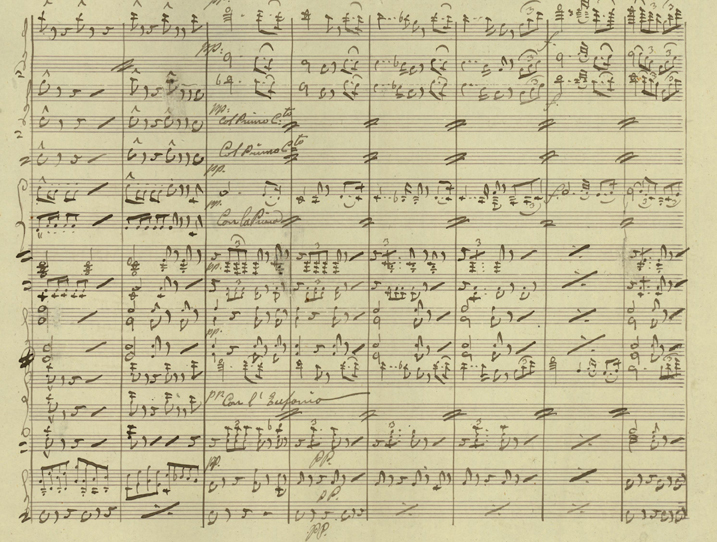 pp:
pp:
Col Primo C.to
Col Primo C.to
pp.
pp.
Con la Prima
pp.
pp.
pp. Con l' Eufonio
pp. PP.
PP.
PP.